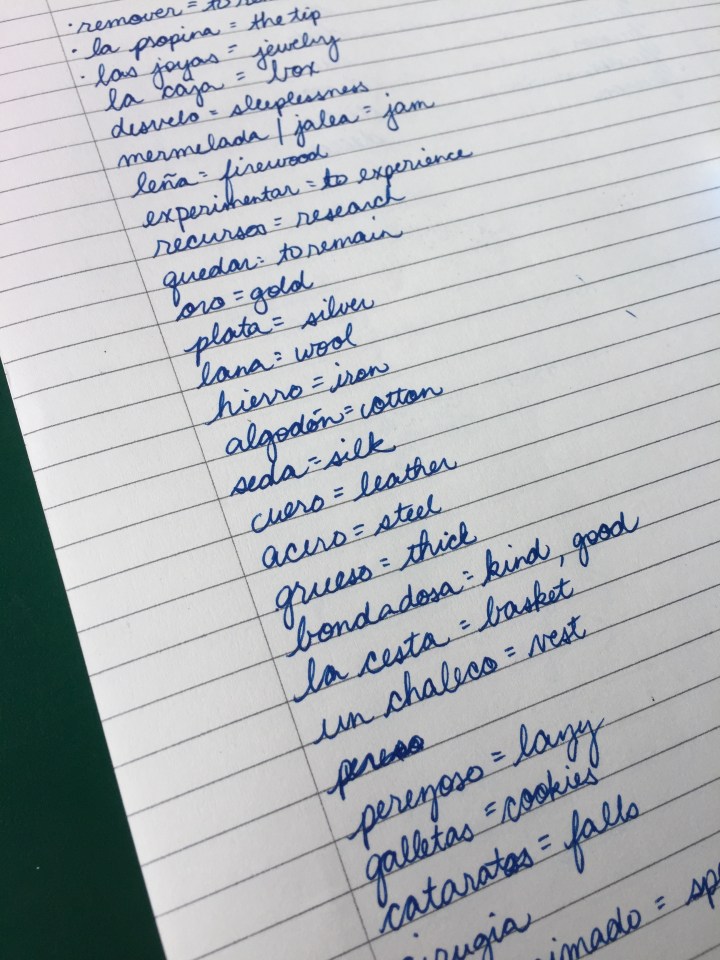 · remover = to
· la propina = the tip
· las joyas = jewelry
la caja = box
desvelo = sleeplessness
mermelada / jalea = jam
leña = firewood
experimentar = to experience
recursos = research
quedar = to remain
oro = gold
plata = silver
lana = wool
hierro = iron
algodón = cotton
seda = silk
cuero = leather
acero = steel
grueso = thick
bondadosa = kind, good
la cesta = basket
un chaleco = vest
perezoso = lazy
galletas = cookies
cataratas = falls
cirugia